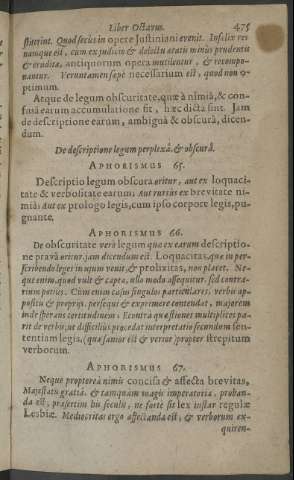 Liber Octavus. 475
stiterint. Quod secùs in opere Justiniani evenit. Infelix res
namque est, cum ex judicio & delectu ætatis minùs prudentis
& erudita, antiquorum opera mutilentur, & recompo-
nantur. Veruntamen sæpè necessarium est, quod non o-
ptimum.
Atque de legum obscuritate, quæ à nimiâ, & con-
fusâ earum accumulatione fit, hæc dicta sint. Jam
de descriptione earum, ambiguâ & obscurâ, dicen-
dum.
De descriptione legum perplexâ, & obscurâ.
APHORISMUS 65.
Descriptio legum obscura oritur, aut ex loquaci-
tate & verbositate earum; Aut rursùs ex brevitate ni-
miâ; Aut ex prologo legis, cum ipso corpore legis, pu-
gnante.
APHORISMUS 66.
De obscuritate verò legum quæ ex earum descriptio-
ne pravâ oritur, jam dicendum est. Loquacitas, quæ in per-
scribendo leges in usum venit & prolixitas, non placet. Ne-
que enim, quod vult & captat, ullo modo assequitur, sed contra-
rium potius. Cùm enim casus singulos particulares, verbis ap-
positis & propriis, persequi & exprimere contendat, majorem
inde sperans certitudinem; Econtrà quæstiones multiplices pa-
rit de verbis; ut difficilius procedat interpretatio secundùm sen-
tentiam legis, (quæ sanior est & verior) propter strepitum
verborum.
APHORISMUS 67.
Neque proptereà nimis concisa & affecta brevitas,
Majestatis gratiâ, & tamquam magis imperatoria, proban-
da est; præsertim his seculis, ne fortè sit lex instar regulæ
Lesbiæ. Mediocritas ergo affectanda est, & verborum ex-
quiren-